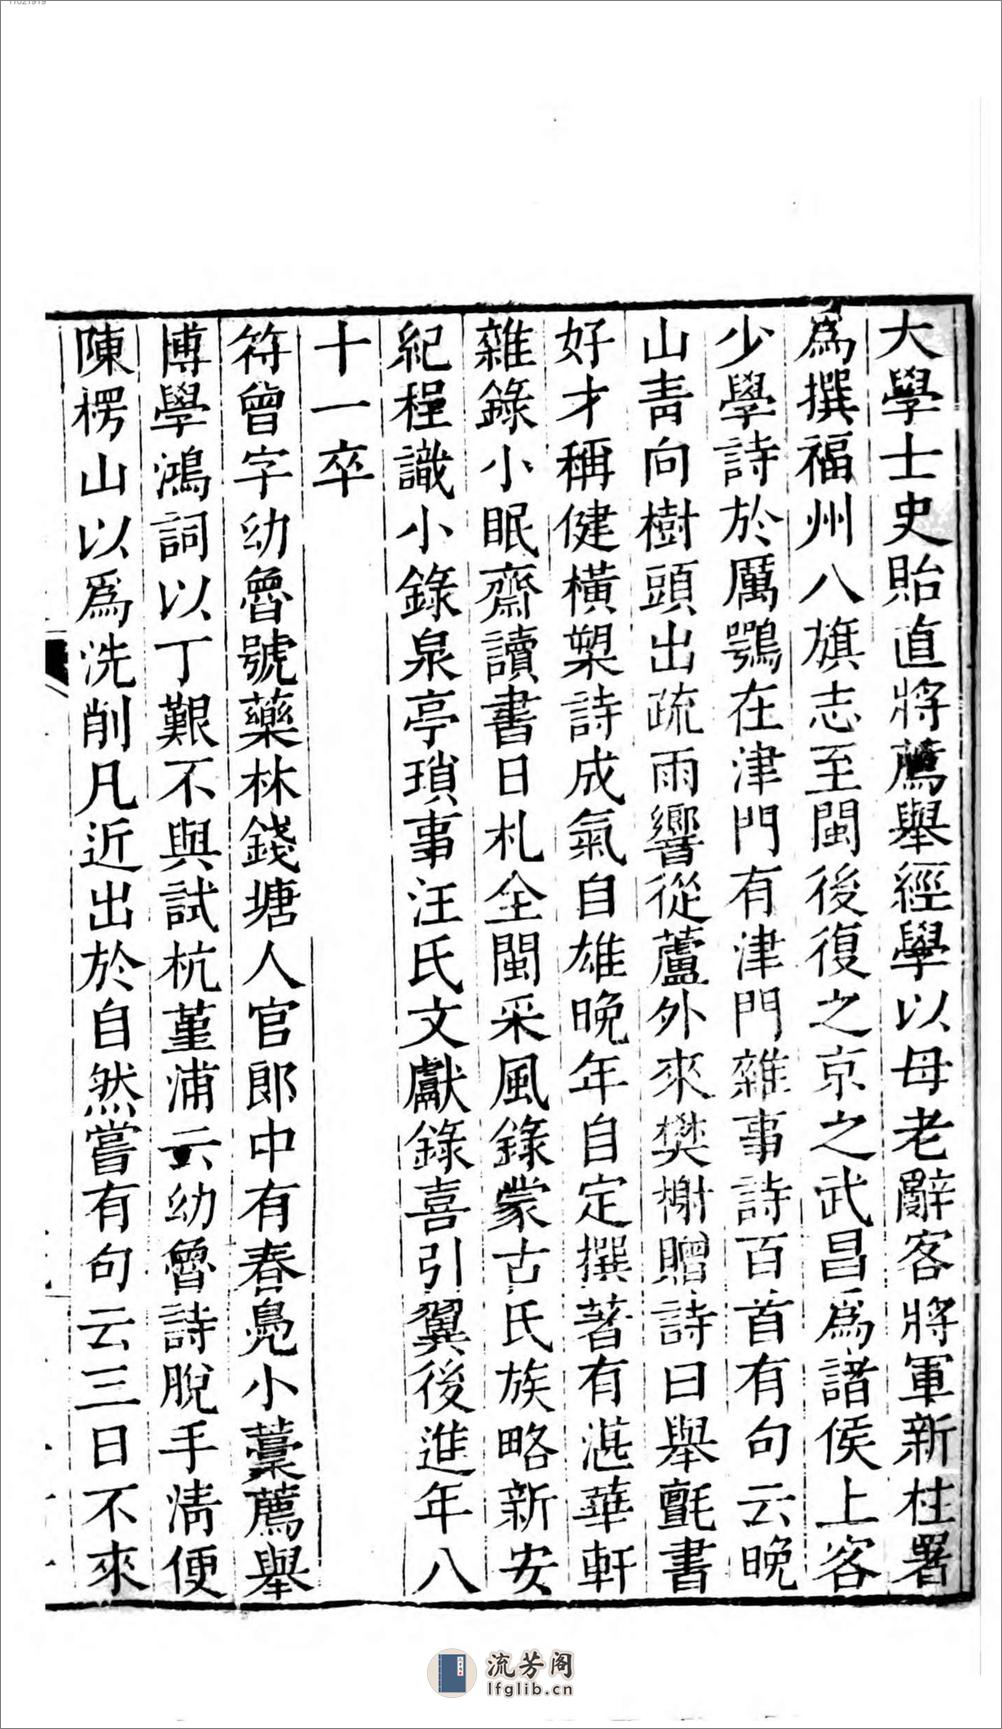 11021919
大學士史貽直將薦舉經學以母老辭客將軍新柱署
爲撰福州八旗志至閩後復之京之武昌爲諸侯上客
少學詩於厲鶚在津門有津門雜事詩百首有句云晚
山青向樹頭出疏雨響從蘆外來樊榭贈詩曰舉氈書
好才稱健橫槊詩成氣自雄晚年自定撰著有湛華軒
雜錄小眠齋讀書日札全閩采風錄蒙古氏族略新安
紀程識小錄泉亭瑣事汪氏文獻錄喜引翼後進年八
十一卒
符曾字幼魯號藥林錢塘人官郎中有春鳧小藁薦舉
博學鴻詞以丁艱不與試杭堇浦云幼魯詩脫手清便
陳楞山以爲洗削凡近出於自然嘗有句云三日不來
流芳阁
lfglib.cn